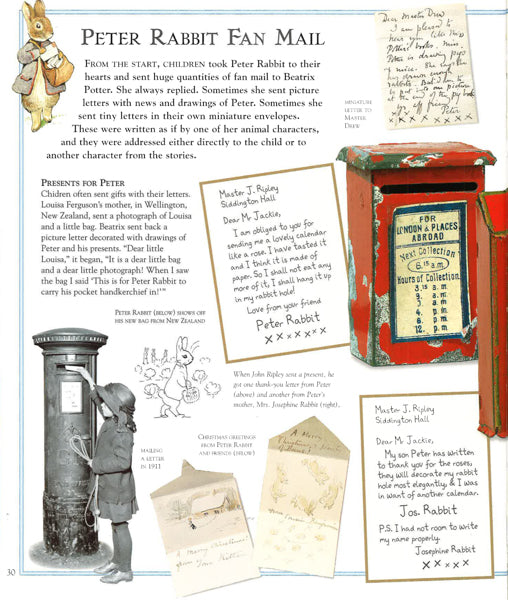 PETER RABBIT FAN MAIL
FROM THE START, CHILDREN took Peter Rabbit to their
hearts and sent huge quantities of fan mail to Beatrix
Potter. She always replied. Sometimes she sent picture
letters with news and drawings of Peter. Sometimes she
sent tiny letters in their own miniature envelopes.
These were written as if by one of her animal characters,
and they were addressed either directly to the child or to
another character from the stories.
Dear Master Drew
I am pleased to
hear you like Miss
Potter's books. Miss
Potter is drawing pigs
& mice. She says she
has drawn enough
rabbits. But I am to
be put into one picture
at the end of the pig book
Yrs aff friend
Peter
x x x x x x
MINIATURE
LETTER TO
MASTER
DREW
PRESENTS FOR PETER
Chidren often sent gifts with their letters.
Louisa Ferguson's mother, in Wellington,
New Zealand, sent a photograph of Louisa
and a little bag. Beatrix sent back a
picture letter decorated with drawings of
Peter and his presents. “Dear little
Louisa,” it began, “It is a dear little bag
and a dear little photograph! When I saw
the bag I said ‘This is for Peter Rabbit to
carry his pocket handkerchief in!’”
PETER RABBIT (BELOW) SHOWS OFF
HIS NEW BAG FROM NEW ZEALAND
Master J. Ripley
Siddington Hall
Dear Mr Jackie,
I am obliged to you for
sending me a lovely calendar
like a rose. I have tasted it
and I think it is made of
paper. So I shall not eat any
more of it, I shall hang it up
in my rabbit hole!
Love from your friend
Peter Rabbit
x x x x x x x
FOR
LONDON & PLACES
ABROAD
Next Collection
6.15 a.m
Hours of Collection
3.15 a.m.
9. a.m
3. p.m.
4. p.m
6. p.m
8. p.m.
12. p.m
When John Ripley sent a present, he
got one thank-you letter from Peter
(above) and another from Peter's
mother, Mrs. Josephine Rabbit (right).
MAILING
A LETTER
IN 1911
CHRISTMAS GREETINGS
FROM PETER RABBIT
AND FRIENDS (BELOW)
A Merry Christmas!
from Tom Kitten
A Merry
Master J. Ripley
Siddington Hall
Dear Mr Jackie,
My son Peter has written
to thank you for the roses,
they will decorate my rabbit
hole most elegantly, & I was
in want of another calendar.
Jos. Rabbit
P.S. I had not room to write
my name properly.
Josephine Rabbit
x x x x x
30